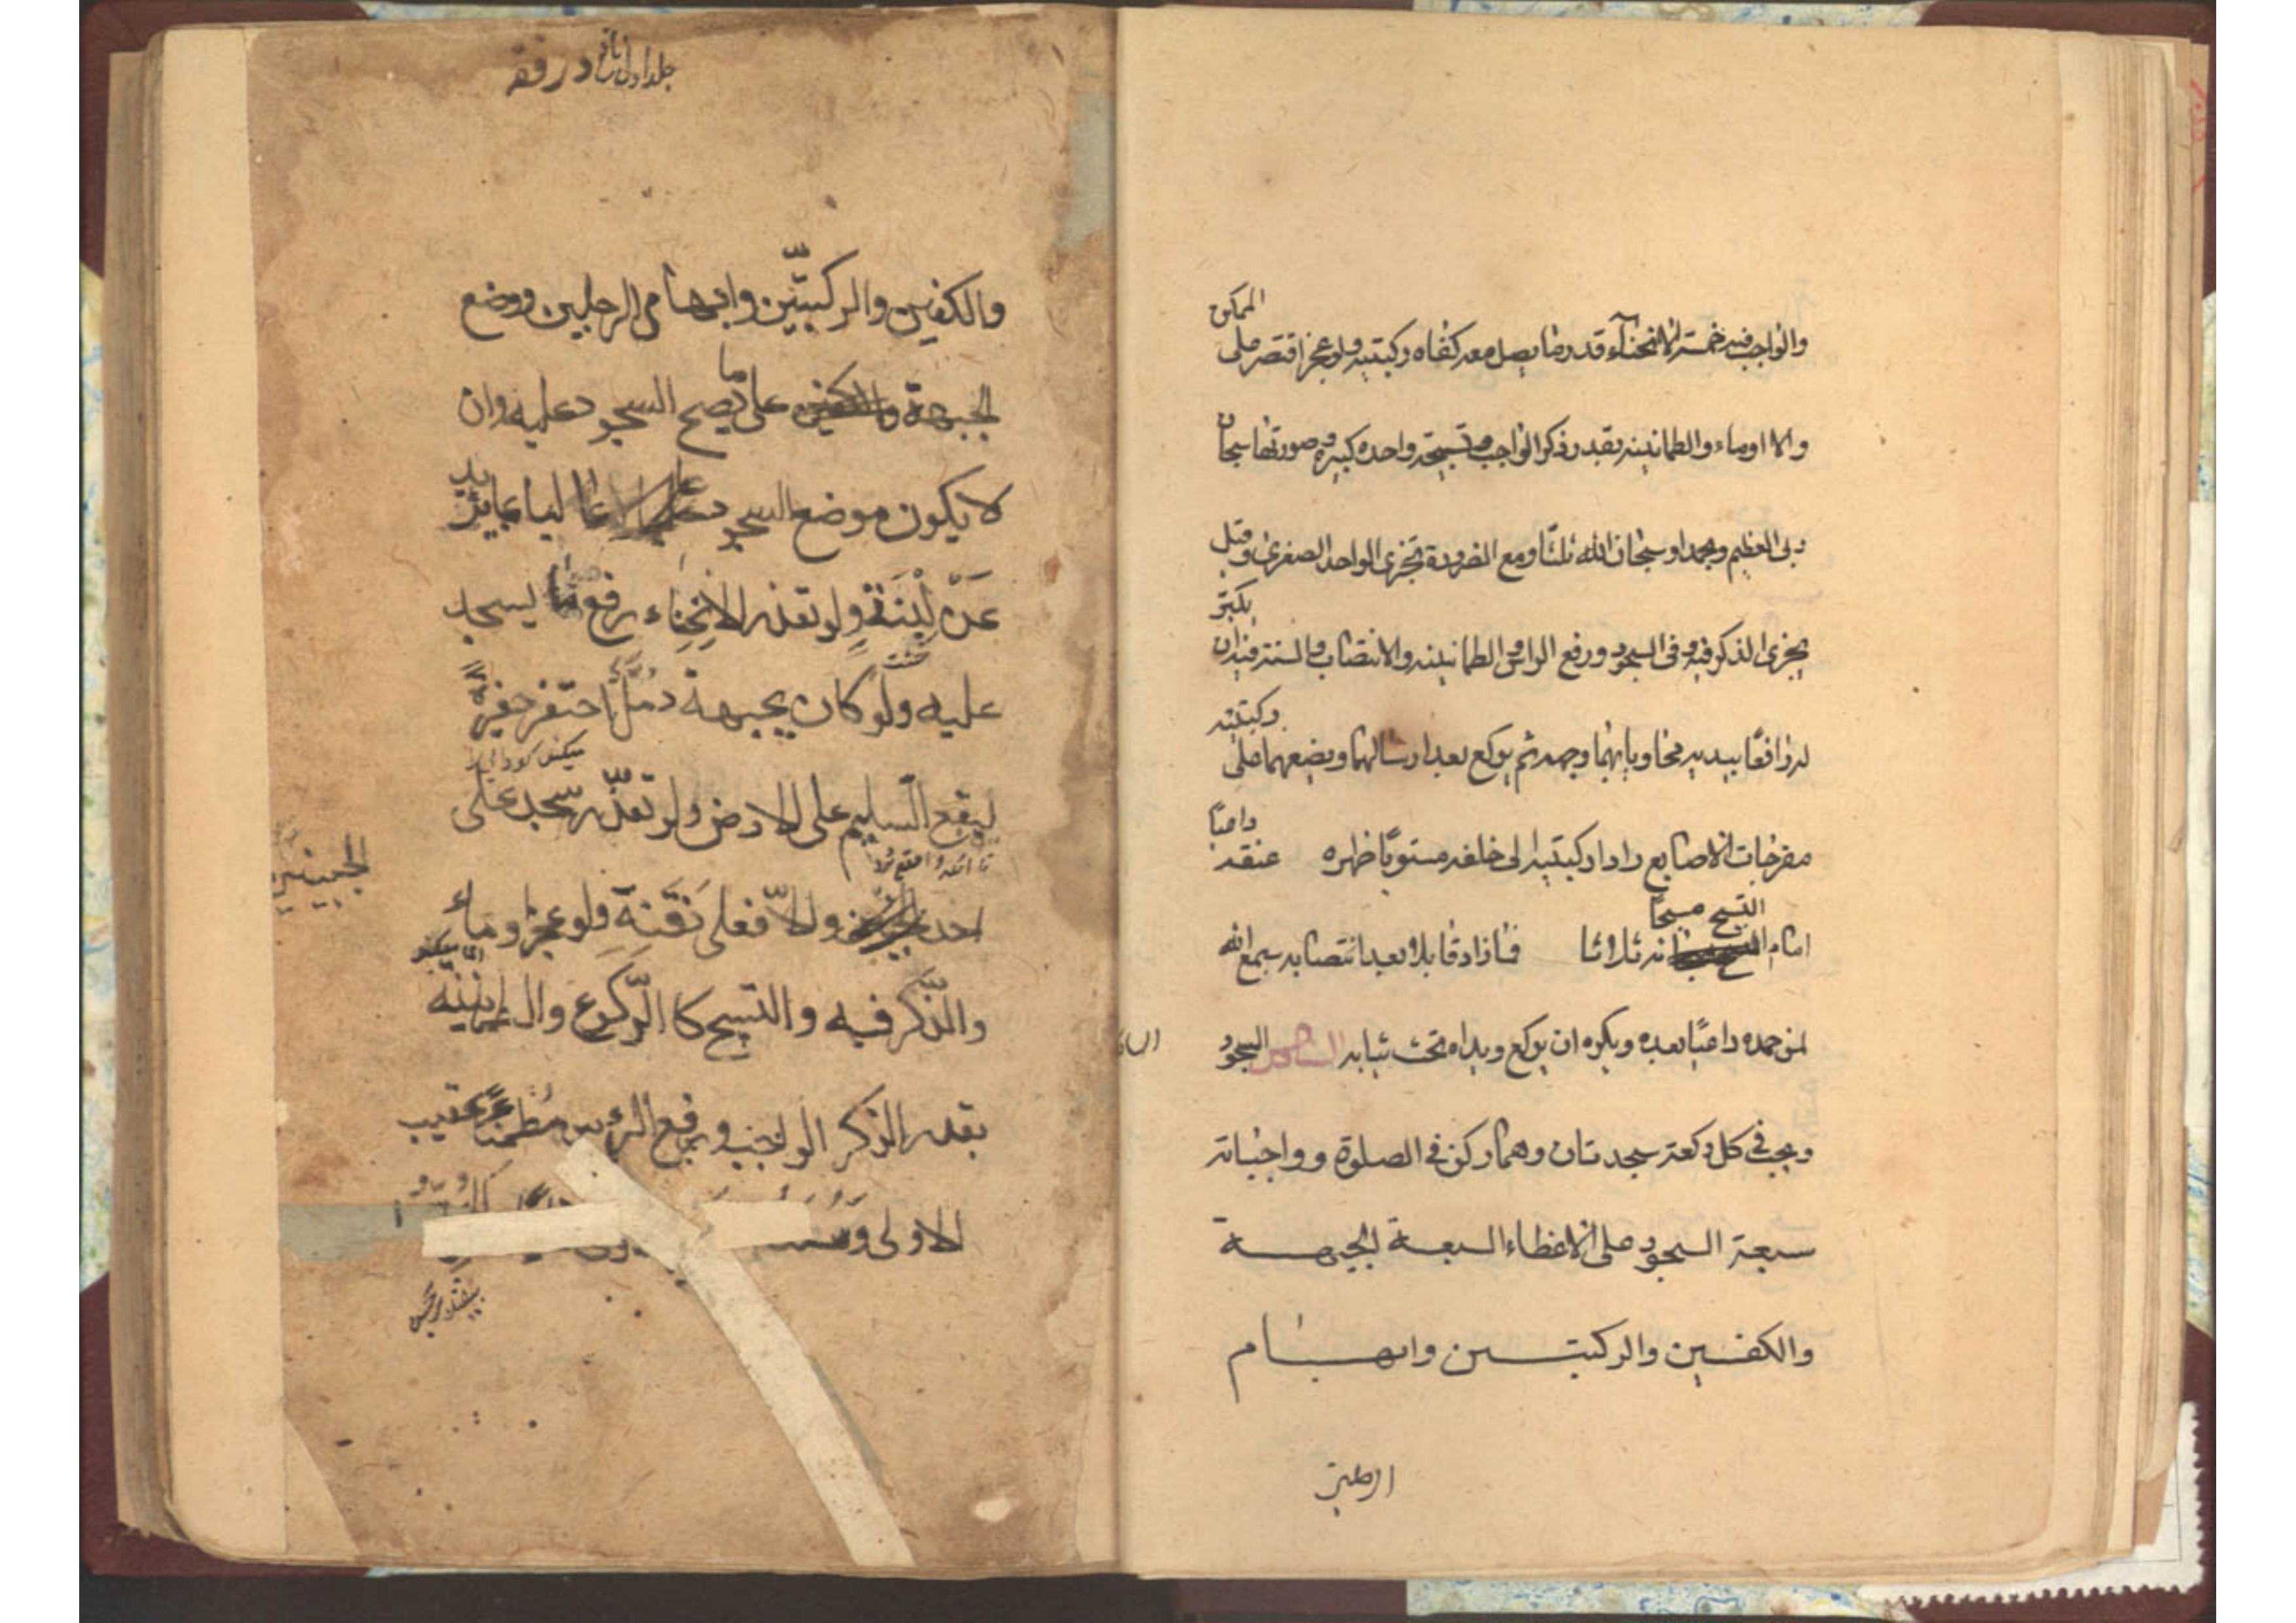 الممكن
والواجب فيه خمسة الانحناء قدر ما يصل معه كفاه ركبتيه ولو عجز اقتصر على
والا اوماء والطمانينه بقدر ذكر الواجب وتسبيحة واحده كبيره صورتها سبحان
ربى العظيم وبحمده او سبحان الله ثلثا ومع الضرورة تجزى الواحد الصغرى وقيل
يكبر
يجزى الذكر فيه وفى السجود ورفع الراس والطمانينه والانتصاب والسنة فيه ان
ركبتيه
له رافعًا بيديه محاويا بهما وجهه ثم يركع بعد ارسالهما ويضعهما على
داعيًا
مفرجات الاصابع رادا ركبتيه الى خلفه مستويًا ظهره عنقه
التسبيح مسبحًا
امام ثلاثا فما زاد قايلا بعد انتصابه سمع الله
لمن حمده داعيًا بعده ويكره ان يركع ويداه تحت ثيابه السادس السجود
ويجب فى كل ركعة سجدتان وهما ركن فى الصلوة وواجباته
سبعة السجود على الاعظاء السبعة الجبهة
والكفين والركبتين وابهام
الرجلين
جلد اول در فقه
والكفين والركبتين وابهامى الرجلين ووضع
الجبهة على ما يصح السجود عليه وان
لا يكون موضع السجود عاليا بما يزيد
عن لبنة ولو تعذر الانحناء رفع ما يسجد
عليه ولو كان بجبهة دمل احتفر حفيرة
ليقع السليم على الارض ولو تعذر سجد على
الجبينين
احد والا فعلى ذقنه ولو عجز اوماء
والذكر فيه والتسبيح كا الركوع والطمانينه
بقدر الذكر الواجب ورفع الراس مطمئنا عقيب
الاولى وسننه